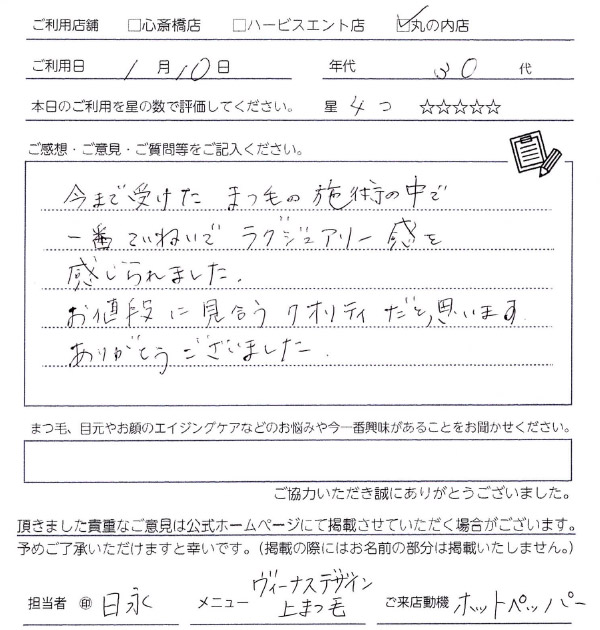 ご利用店舗 □心斎橋店 □ハービスエント店 ☑丸の内店
ご利用日 1月10日 年代 30代
本日のご利用を星の数で評価してください。 星4つ ☆☆☆☆☆
ご感想・ご意見・ご質問等をご記入ください。
今まで受けた まつ毛の施術の中で
一番ていねいで ラグジュアリー感を
感じられました。
お値段に見合うクオリティだと、思います
ありがとうございました。
まつ毛、目元やお顔のエイジングケアなどのお悩みや今一番興味があることをお聞かせください。
ご協力いただき誠にありがとうございました。
頂きました貴重なご意見は公式ホームページにて掲載させていただく場合がございます。
予めご了承いただけますと幸いです。(掲載の際にはお名前の部分は掲載いたしません。)
ヴィーナスデザイン
担当者 ㊞ 日永 メニュー 上まつ毛 ご来店動機 ホットペッパー